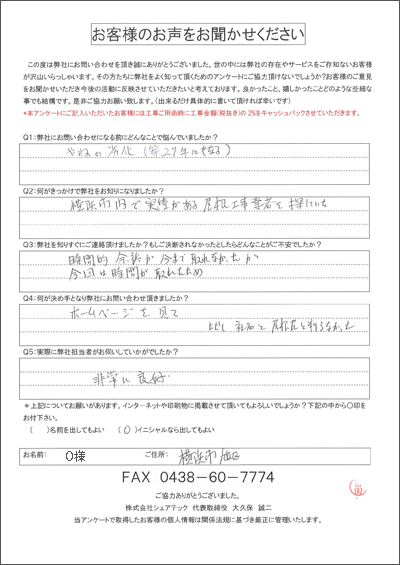 お客様のお声をお聞かせください
この度は弊社にお問い合わせを頂き誠にありがとうございました。世の中には弊社の存在やサービスをご存知ないお客様
が沢山いらっしゃいます。その方たちに弊社をよく知って頂くためのアンケートにご協力頂けないでしょうか?お客様のご意見
をお聞かせいただき今後の活動に反映させていただきたいと考えております。良かったこと、嬉しかったことどのような些細な
事でも結構です。是非ご協力お願い致します。(出来るだけ具体的に書いて頂ければ幸いです)
*本アンケートにご記入いただいたお客様には工事ご用命時に工事金額(税抜き)の2%をキャッシュバックさせていただきます。
Q1:弊社にお問い合わせになる前にどんなことで悩んでいましたか?
やねの劣化(築27年になる)
Q2:何がきっかけで弊社をお知りになりましたか?
横浜市内で実績がある屋根工事業者を探していた
Q3:弊社を知りすぐにご連絡頂けましたか?もしご決断されなかったとしたらどんなことがご不安でしたか?
時間的余裕が今まで取れなかったが
今回は時間が取れたため
Q4:何が決め手となり弊社にお問い合わせ頂きましたか?
ホームページを見て
Q5:実際に弊社担当者がお伺いしていかがでしたか?
非常に良好
*上記についてお願いがあります。インターネットや印刷物に掲載させて頂いてもよろしいでしょうか?下記の中から〇印を
お付下さい。
( )名前を出してもよい ( O )イニシャルなら出してもよい
お名前: O様 ご住所: 横浜市
FAX 0438-60-7774
ご協力ありがとうございました。
株式会社シェアテック 代表取締役 大久保 誠二
当アンケートで取得したお客様の個人情報は関係法規に基づき厳正に管理いたします。